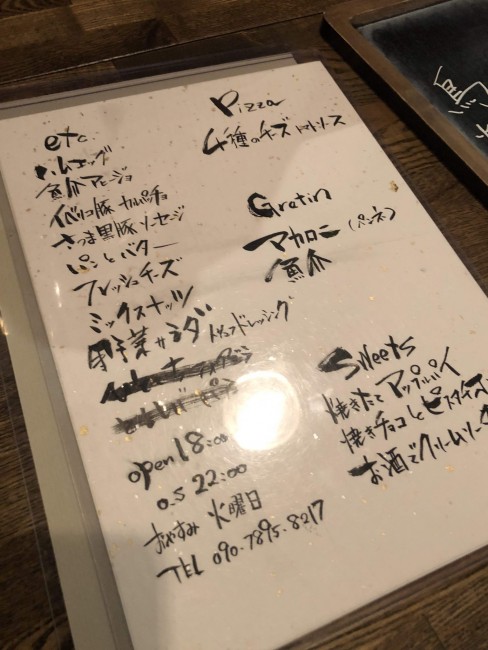 etc
ハムエッグ
魚介アヒージョ
イベリコ豚 カルパッチョ
さつま黒豚ソーセージ
パンとバター
フレッシュチーズ
ミックスナッツ
野菜サラダ トリュフドレッシング
open 18:00
o.s 22:00
おやすみ 火曜日
TEL 090-7895-8217
Pizza
4種のチーズ トマトソース
Gratin
マカロニ (ペンネ)
魚介
Sweets
焼きたてアップルパイ
焼きチョコとピスタチオ
お酒でクリームソーダ